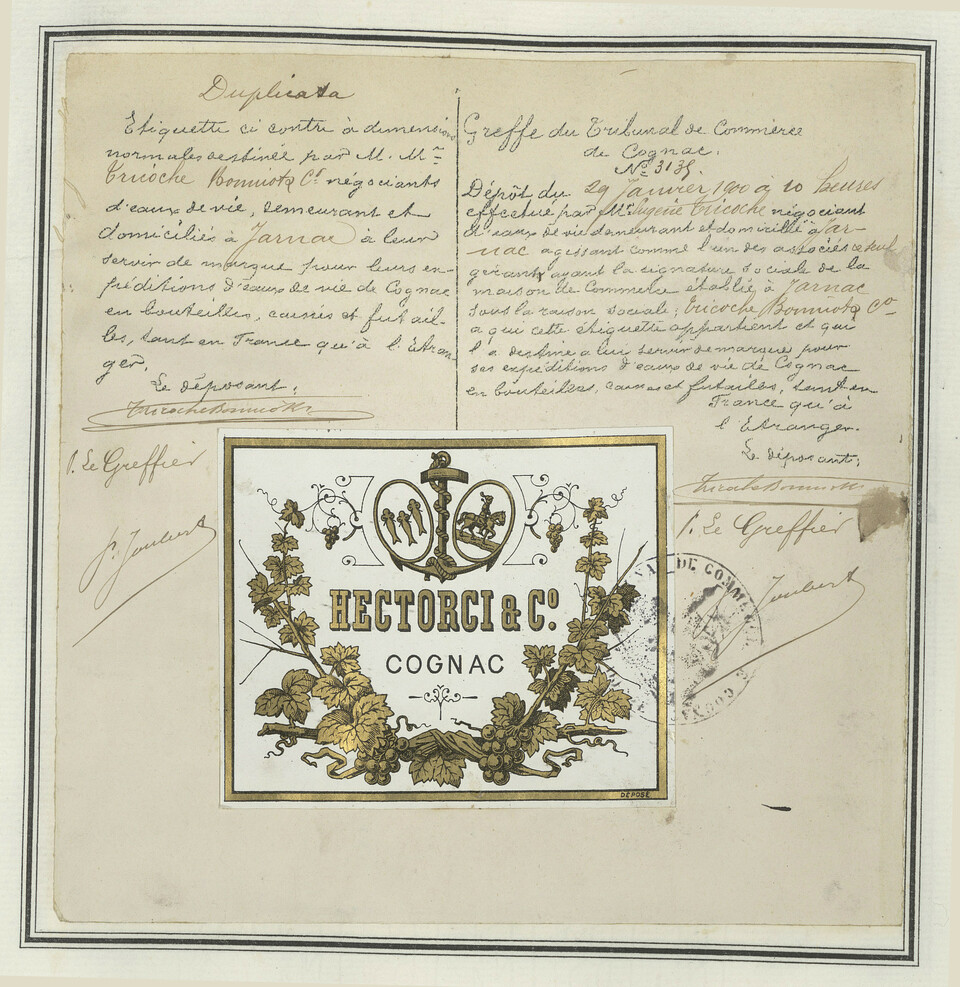 Duplicata
Etiquette ci contre à dimensions
normales destinée par M. Mrs
Tricoche Bonniot & Co négociants
d'eaux de vie, demeurant et
domiciliés à Jarnac à leur
servir de marque pour leurs ex-
péditions d'eaux de vie de Cognac
en bouteilles, caisses et futail-
les, tant en France qu'à l'Etran-
ger.
Le déposant,
Tricoche Bonniot & Co
P. Le Greffier
Joubert
Greffe du Tribunal de Commerce
de Cognac.
No 3135.
Dépôt du 29 Janvier 1900 à 10 heures
effectué par Mr Eugène Tricoche négociant
d'eaux de vie demeurant et domicilié à Jar-
nac agissant comme l'un des associés et seul
gérant ayant la signature sociale de la
maison de Commerce établie à Jarnac
sous la raison sociale; Tricoche Bonniot & Co
à qui cette étiquette appartient et qui
l'a destine a lui servir de marque pour
ses expéditions d'eaux de vie de Cognac
en bouteilles, caisses et futailles, tant en
France qu'à
l'Etranger.
Le déposant,
Tricoche Bonniot & Co
P. Le Greffier
Joubert
HECTORCI & Co.
COGNAC
DÉPOSÉ
DE COMMERCE